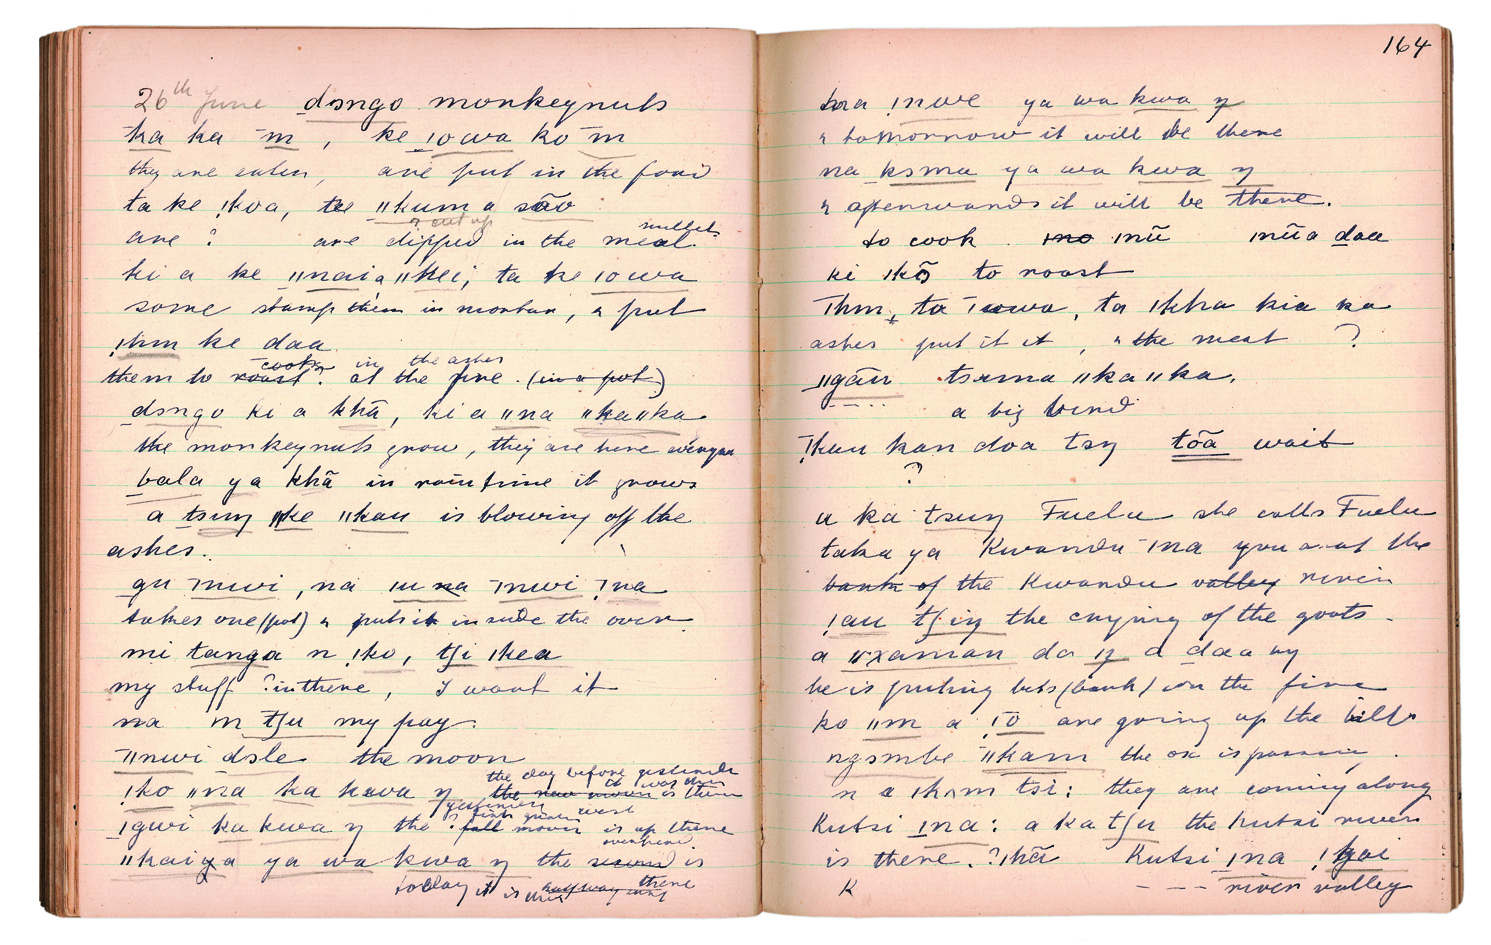 26th June dɔngo monkeynuts
ha ka m̄, ke ꞌowa ko m̄
they are eaten, are put in the food
ta ke !koa, te ǁkum a são
& cut up
millet
are ? are dipped in the meal.
ki a ke ǁnai a ǁkei, ta ke ꞌowa
some stamp them in mortar, & put
!hm ke daa
cook in the ashes
them to roast? at the fire. (in a pot)
dɔngo ki a khã, ki a ǁna ǁkaǁka
the monkeynuts grow, they are here
bala ya khã in raintime it grows
a tsuŋ ǁke ǁkau is blowing off the
ashes.
gu ꞌnwi, na ꞌu na ꞌnwi !na
takes one (pot) & puts it inside the oven
mi tanga n !ko, tʃi ꞌkea
my stuff ? in there, I want it
na m tʃu my pay.
ǁnwi dsle the moon
the day before yesterday
it was there
!ko ǁna ka kwa ŋ the new moon is there
yesterday
is first quarter west
ꞌgwi ka kwa ŋ the full moon is up there
overhead
ǁkaiya ya wa kwa ŋ the second is
today it is there
164
ꞌnwe ya wa kwa ŋ
& tomorrow it will be there
na ksma ya wa kwa ŋ
& afterwards it will be there.
to cook ꞌno ꞌnũ ꞌnũa daa
ki ꞌkõ to roast
ꞌhm, ta ꞌuwa, ta ꞌkha kia ka
ashes put it it, & the meat ?
ǁgãu tsɛma ǁkaǁka.
a big bird
!kau kan doa tsŋ tõa wait
?
u ka tsuŋ Fuelu she calls Fuelu
taka ya Kwandu ꞌna you at the
bank of the Kwandu valley river
!au tʃiŋ the crying of the goats.
a ǁxaman da ŋ a daa uŋ
he is putting bits (bark) on the fire
ko ǁm a !õ are going up the hill
ngɔmbe ǁkam the ox is passing
n a ꞌham tsi: they are coming along
Kutsi ꞌna: a ka tʃu the Kutsi river
is there. ? ꞌkã Kutsi ꞌna !goi
K - - - river valley